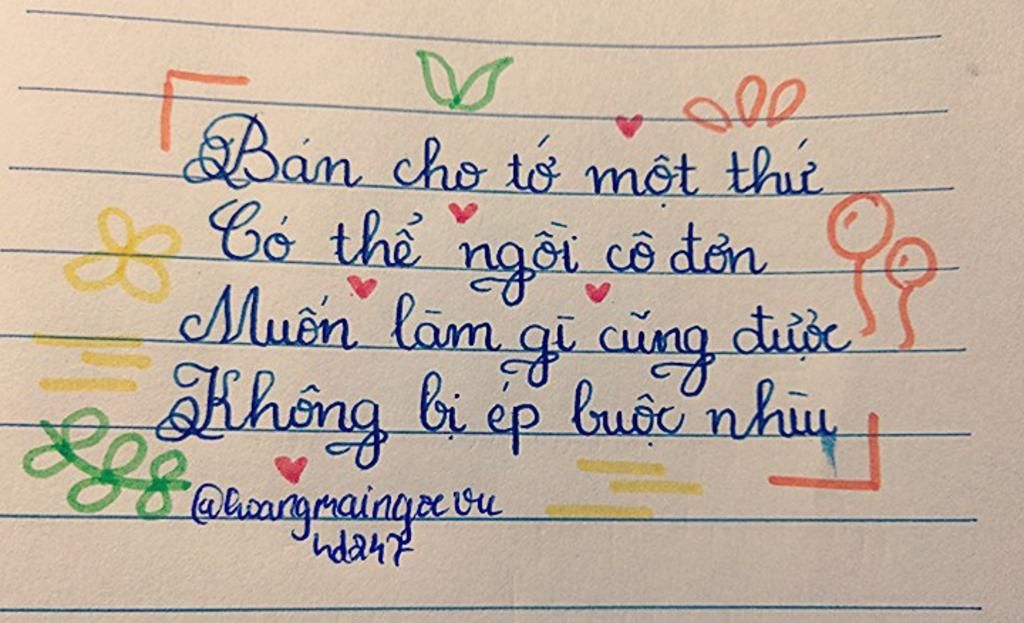 Bán cho tớ một thứ
Có thể ngồi cô đơn
Muốn làm gì cũng được
Không bị ép buộc nhìu
@hoangmaingocvu
hd247